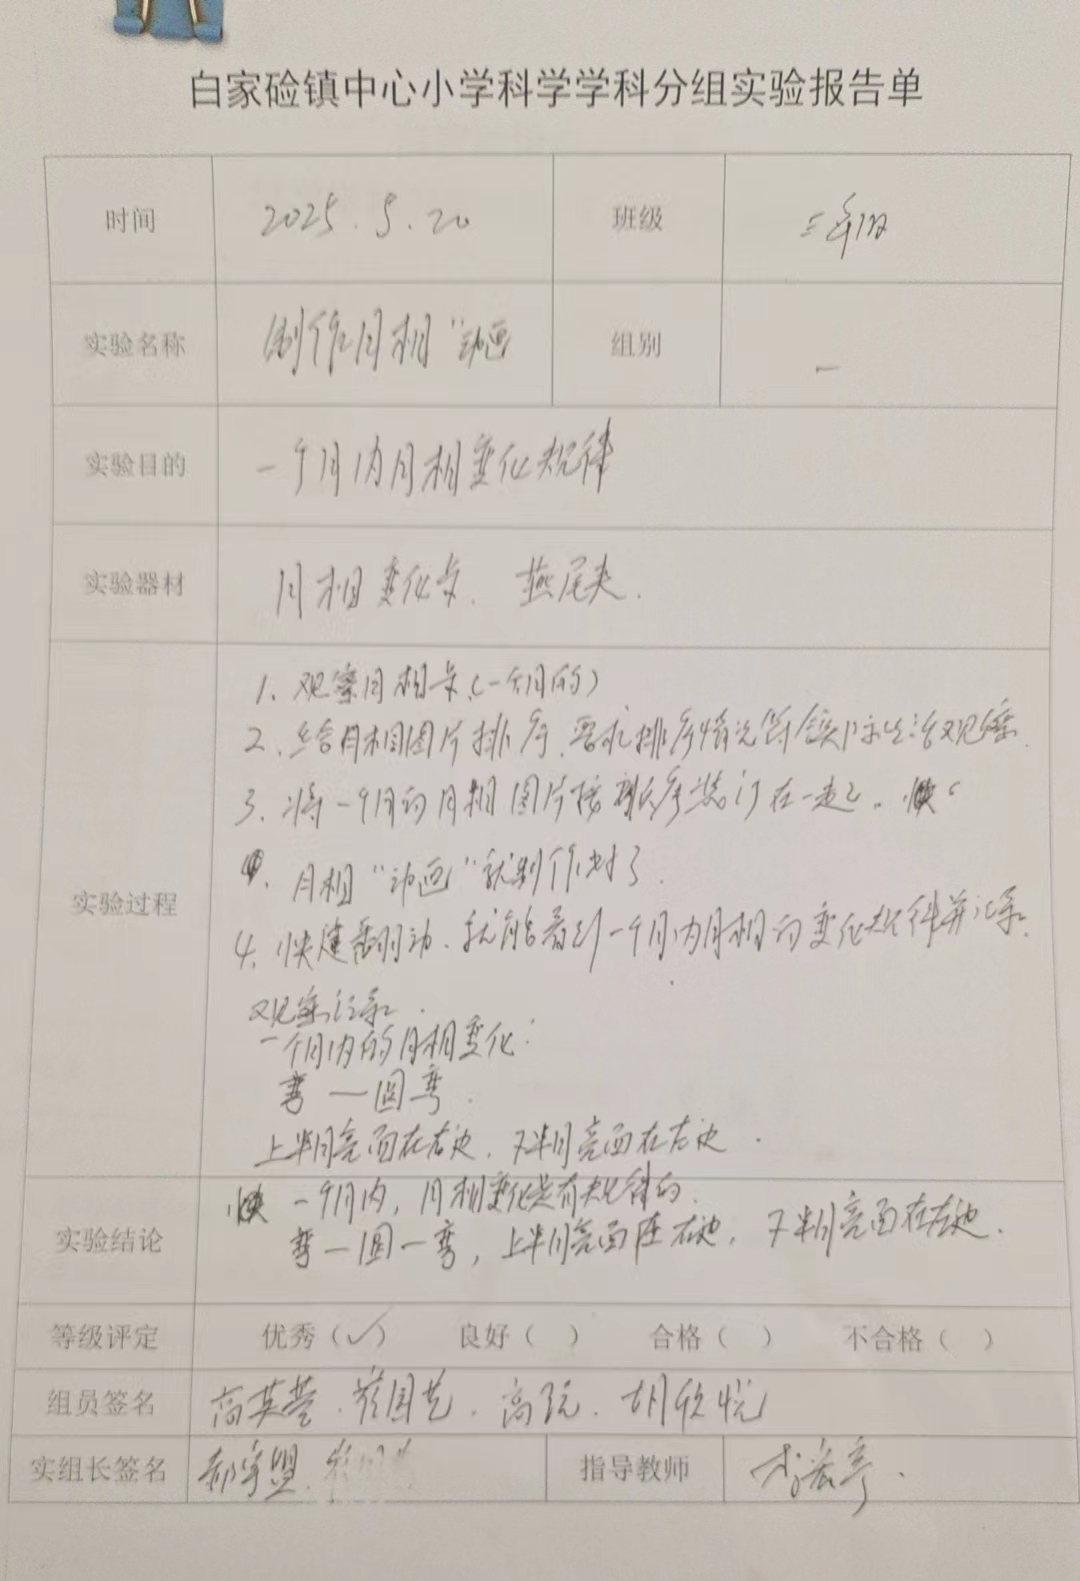 白家硷镇中心小学科学学科分组实验报告单
时间 2025.5.20 班级 三年级
实验名称 制作月相“动画 组别 一
实验目的 一个月内月相变化规律
实验器材 月相变化卡. 燕尾夹.
实验过程
1. 观察月相卡.(一个月的)
2. 给月相图片排序.要求排序情况符合实际生活观察.
3. 将一个月的月相图片按顺序装订在一起.
月相“动画”就制作成了.
4. 快速翻动.就能看到一个月内月相的变化规律并记录.
观察记录.
一个月内的月相变化:
弯—圆弯.
上半月亮面在右边.下半月亮面在左边.
实验结论
一个月内,月相变化是有规律的.
弯一圆一弯,上半月亮面在右边,下半月亮面在左边.
等级评定 优秀(✓) 良好( ) 合格( ) 不合格( )
组员签名 高英莹.崔国艺.高.胡欣悦
实组长签名 郝宇盟. 指导教师 李宏亮.